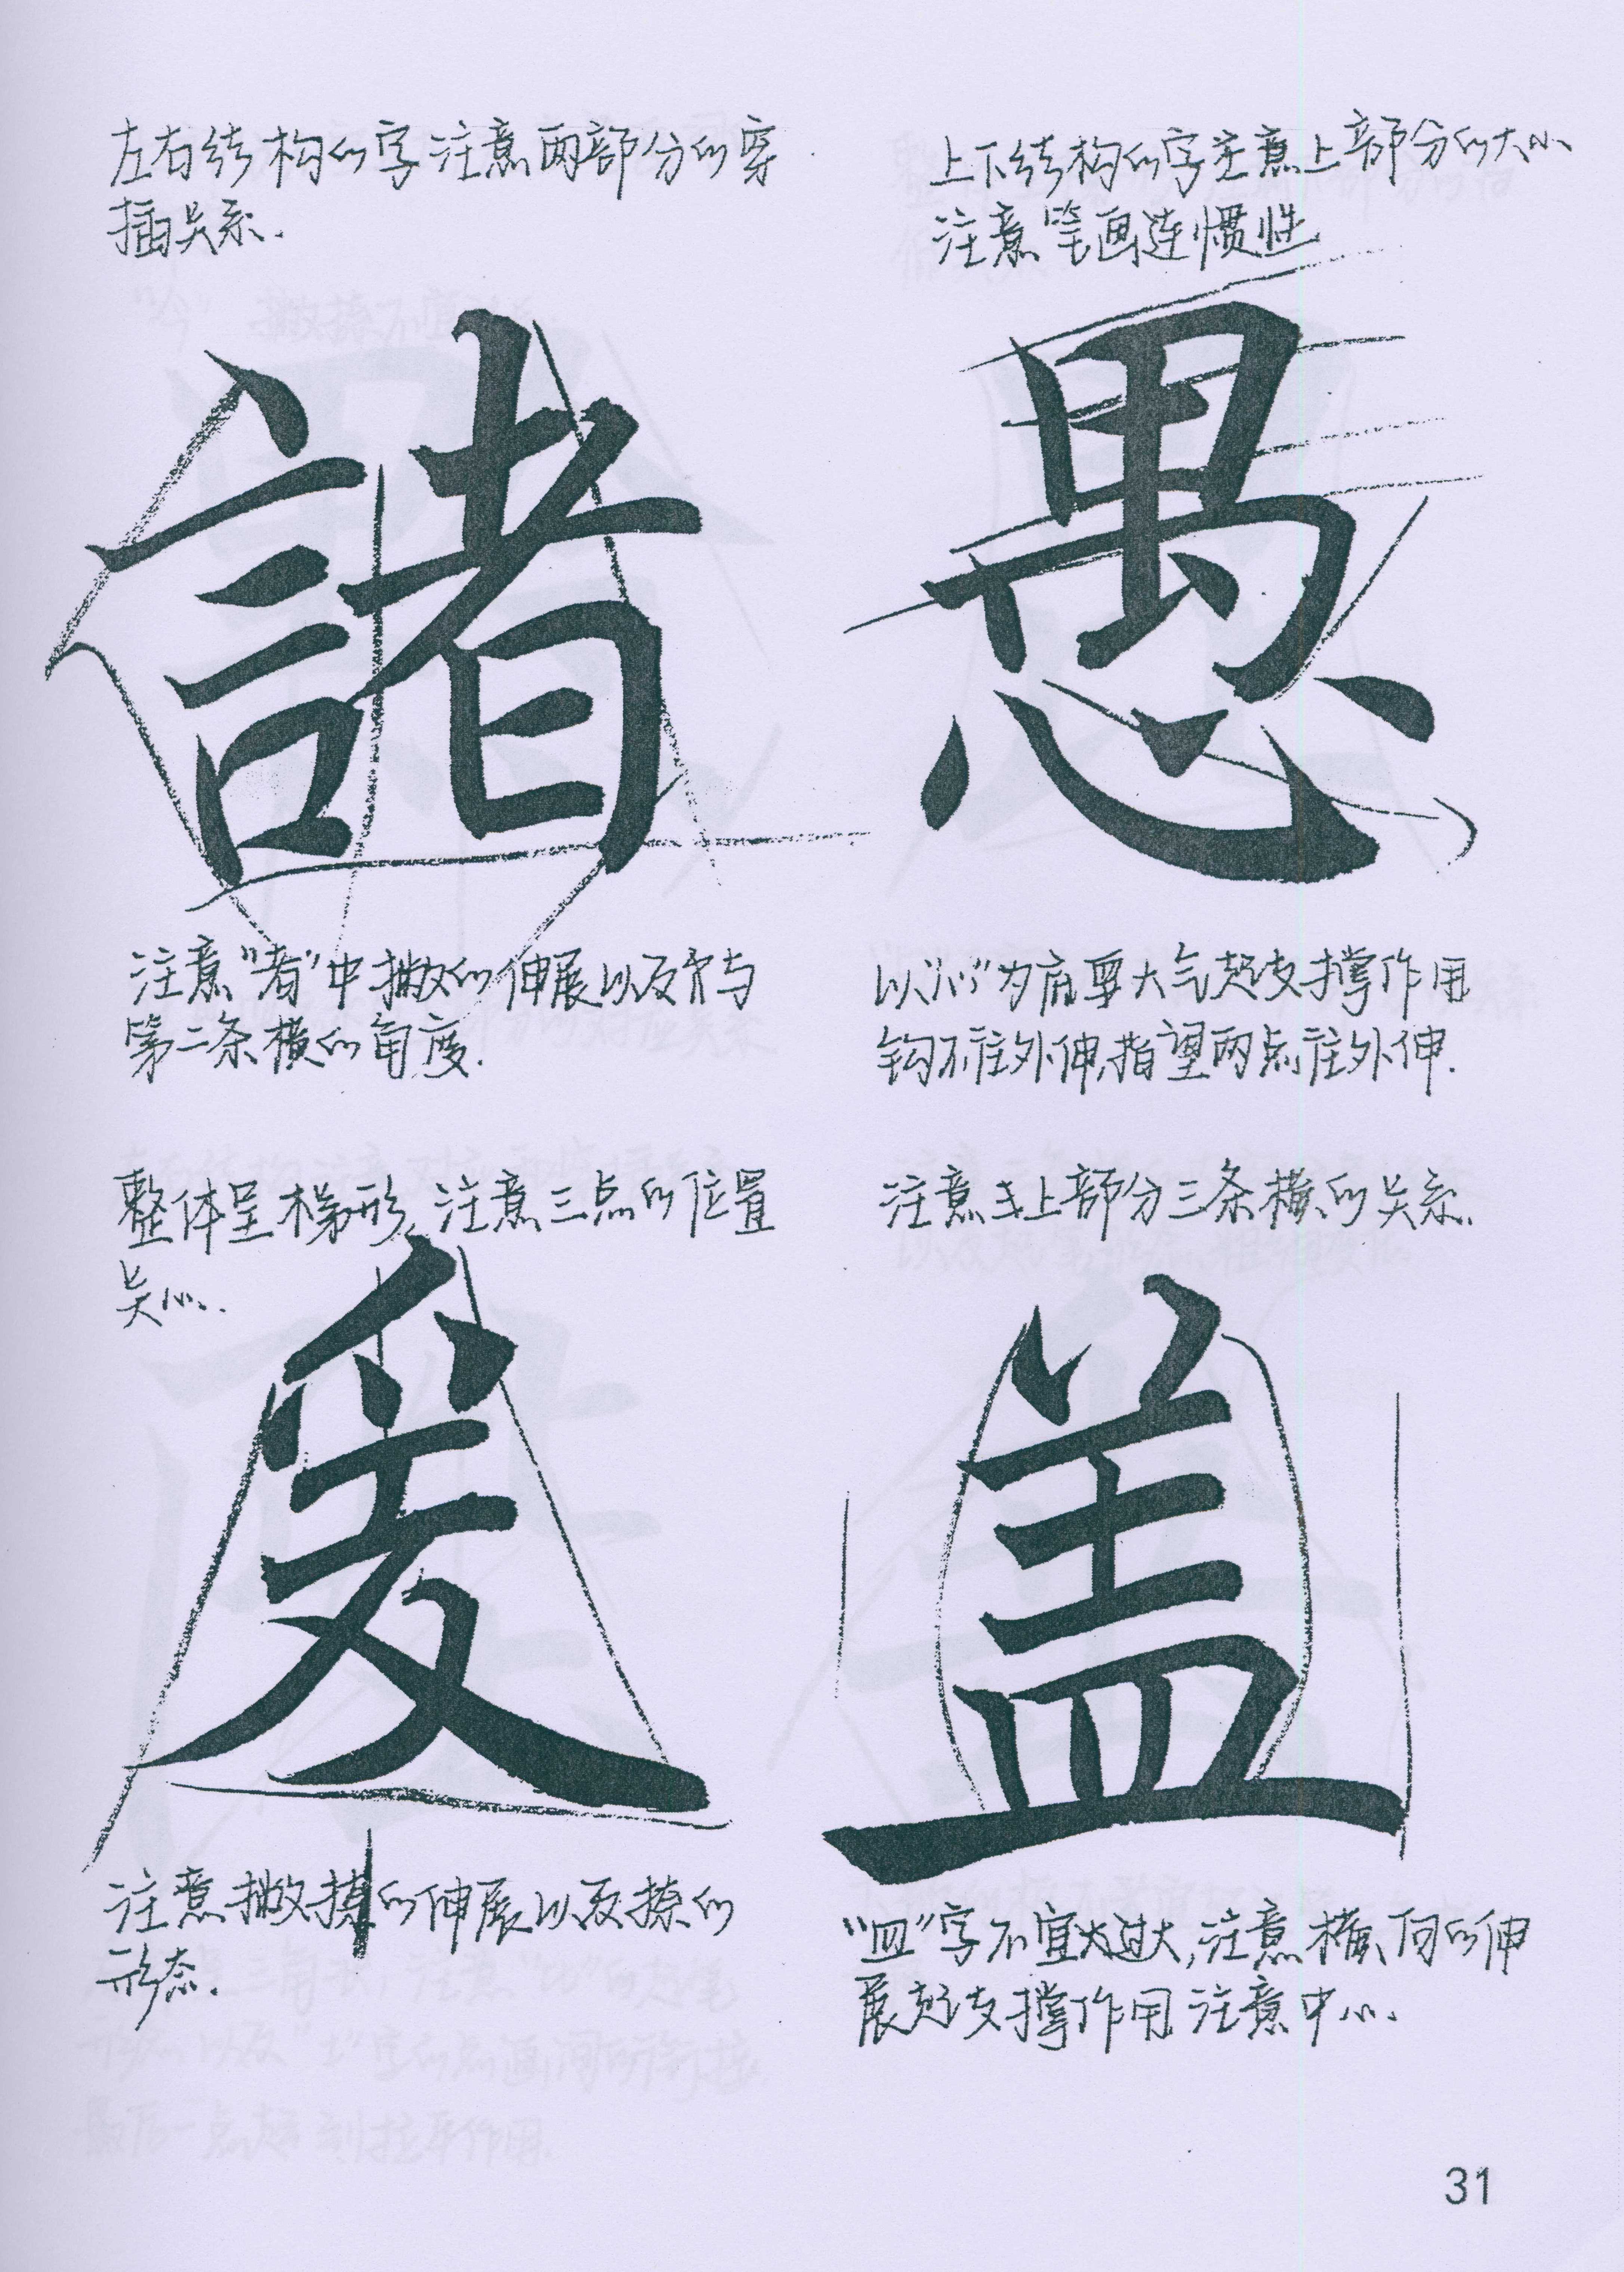 左右结构的字注意两部分的穿
插关系.
諸
注意"者"中撇的伸展以及它与
第二条横的角度.
上下结构的字注意上部分的大小
注意笔画连惯性
愚
以"心"为底要大气起支撑作用
钩不往外伸,指望两点往外伸.
整体呈梯形,注意三点的位置
关心.
爰
注意撇捺的伸展以及捺的
形态.
注意上部分三条横的关系.
盖
"皿"字不宜过大,注意横向的伸
展起支撑作用 注意中心.
31